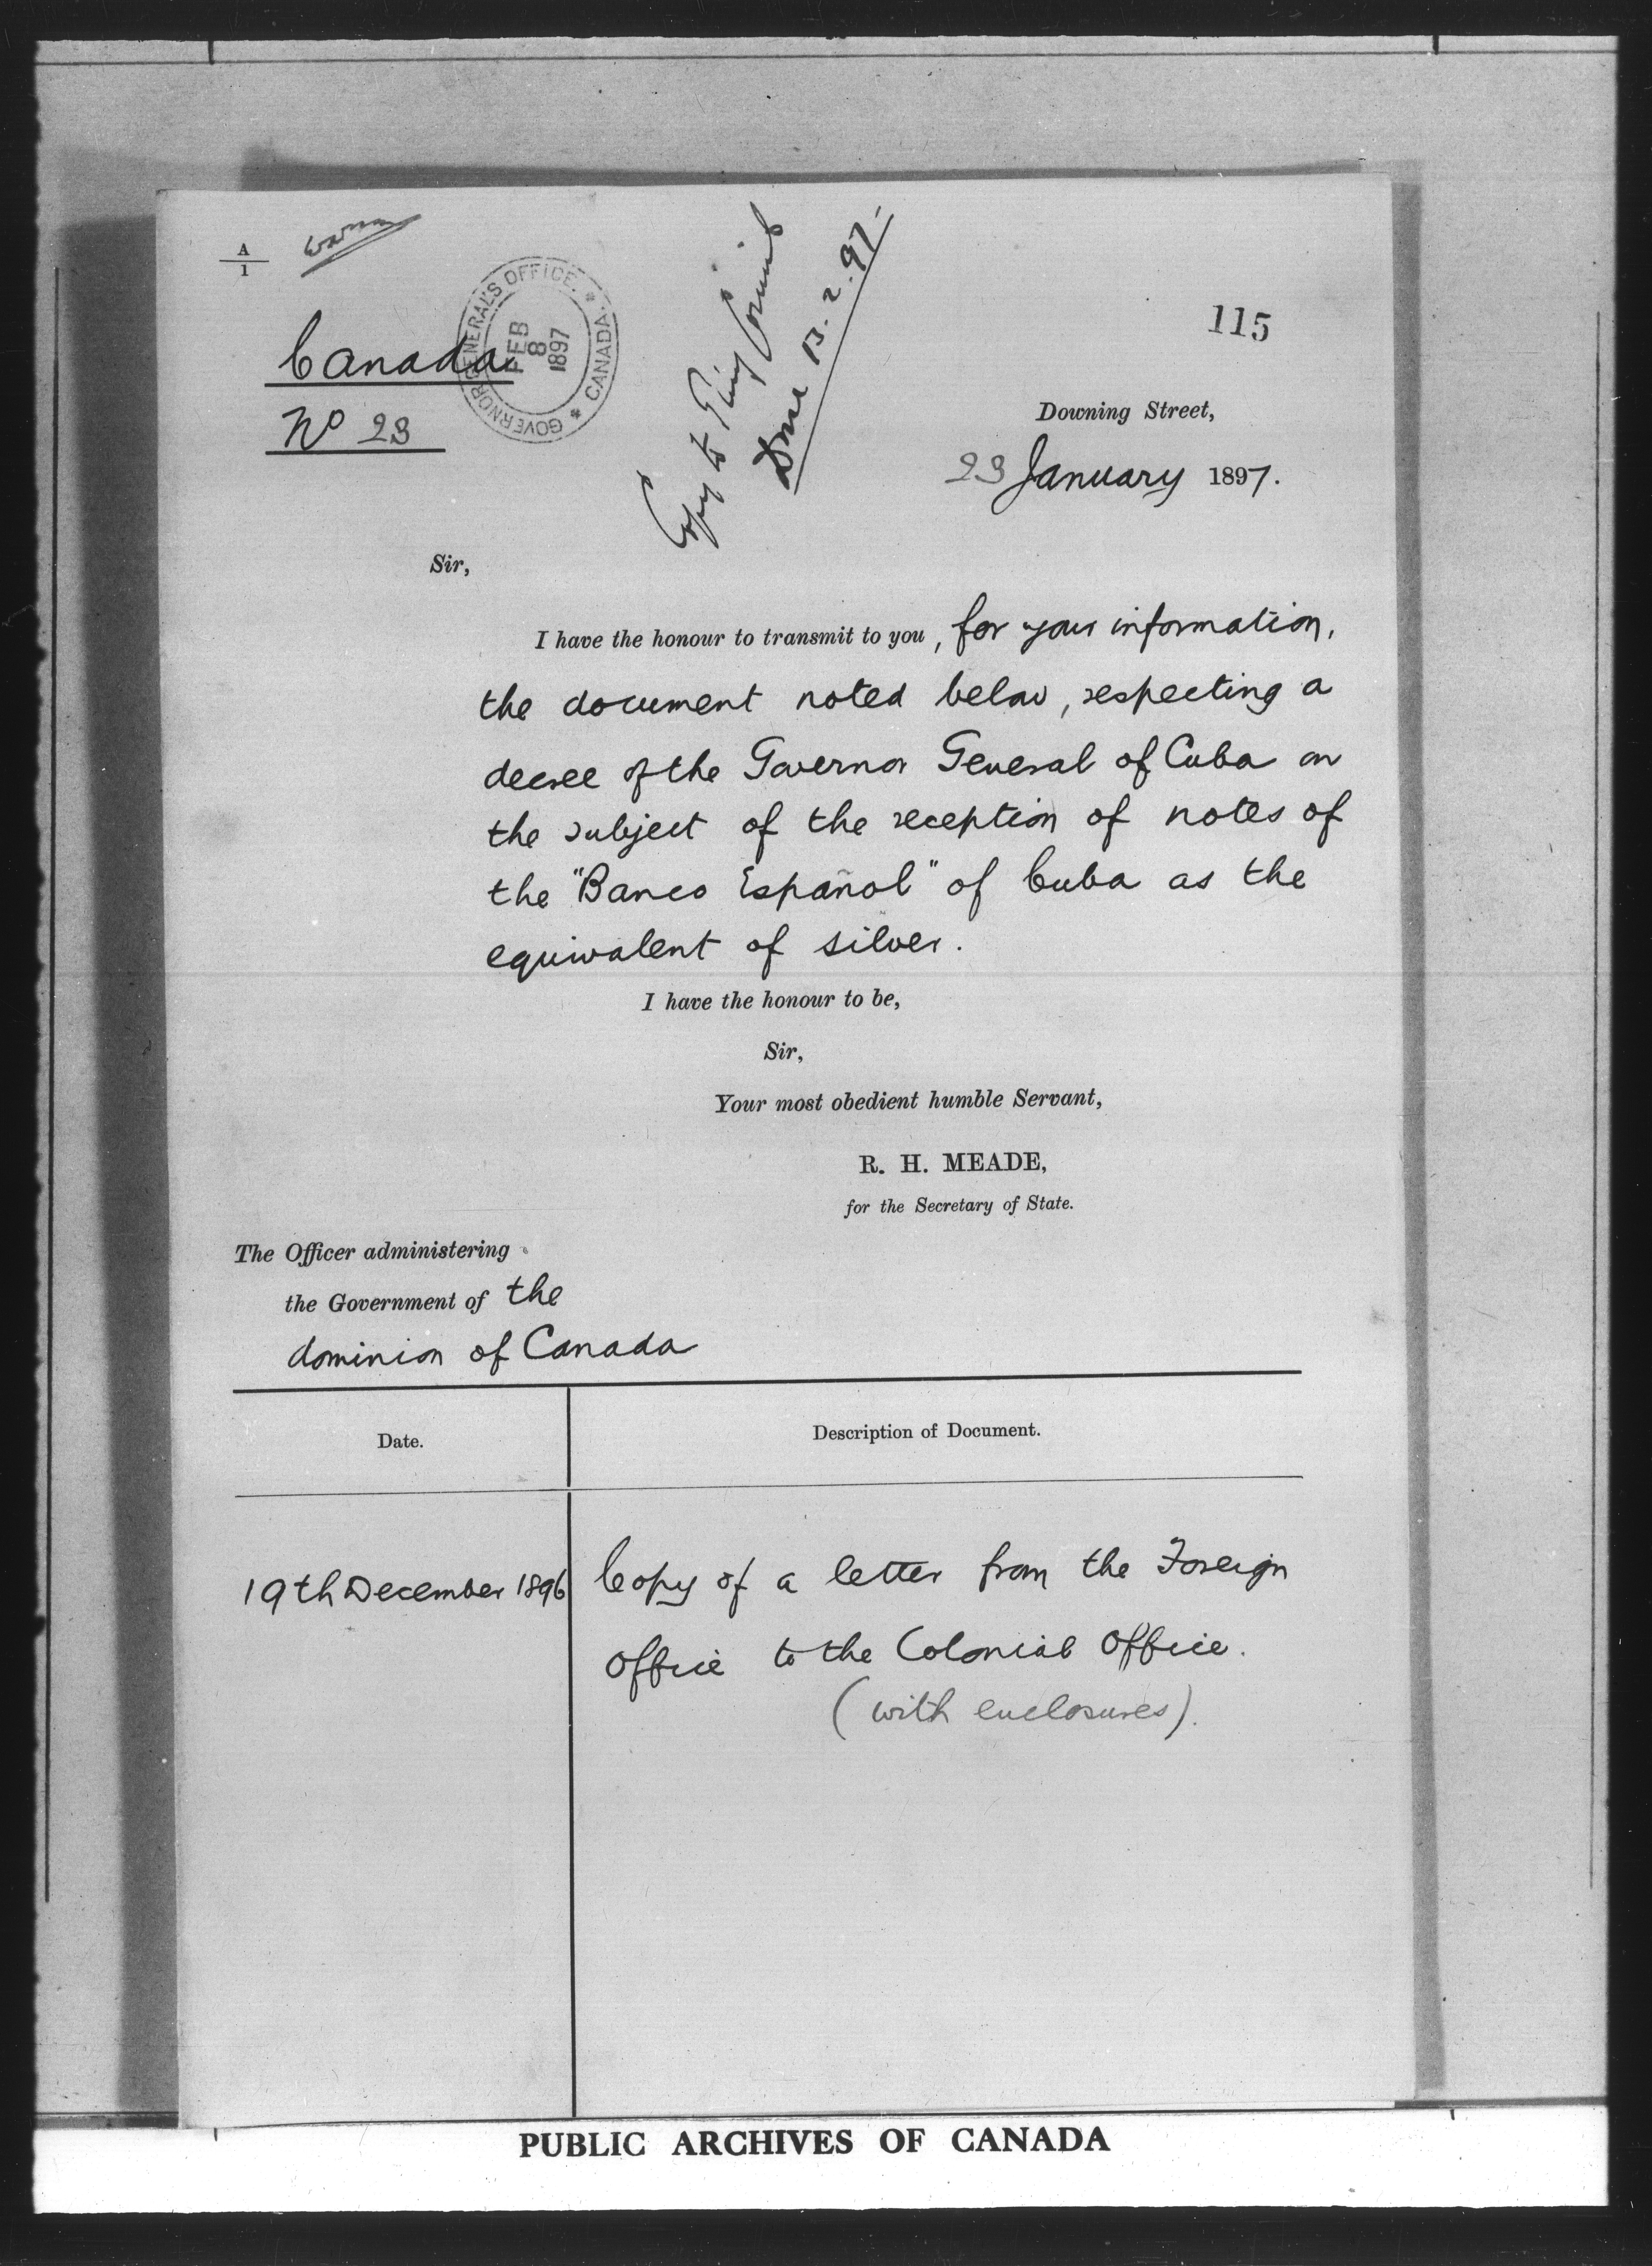 A
1
Canada
No 23
GOVERNOR GENERAL'S OFFICE. * CANADA. *
FEB
8
1897
Copy to Privy Council
Done 13.2.97.
115
Downing Street,
23 January 1897.
Sir,
I have the honour to transmit to you, for your information,
the document noted below, respecting a
decree of the Governor General of Cuba on
the subject of the reception of notes of
the "Banco Español" of Cuba as the
equivalent of silver.
I have the honour to be,
Sir,
Your most obedient humble Servant,
R. H. MEADE,
for the Secretary of State.
The Officer administering
the Government of the
dominion of Canada
Date.
Description of Document.
19th December 1896
Copy of a letter from the Foreign
Office to the Colonial Office.
(with enclosures).
PUBLIC ARCHIVES OF CANADA